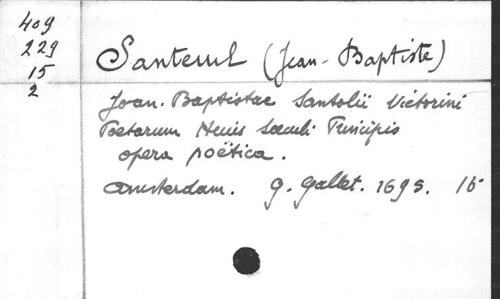 409
229
15
2
Santeuil (Jean-Baptiste)
Joan. Baptistae Santolii Victorini
Poetarum Hujus Sæculi Principis
opera poëtica.
Amsterdam. G. Gallet. 1695. 16